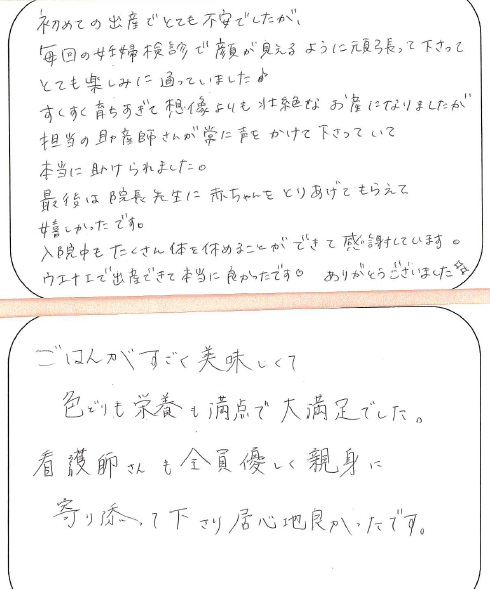 初めての出産でとても不安でしたが、
毎回の妊婦検診で顔が見えるように頑張って下さって
とても楽しみに通っていました♪
すくすく育ちすぎて想像よりも壮絶なお産になりましたが
担当の助産師さんが常に声をかけて下さっていて
本当に助けられました。
最後は院長先生に赤ちゃんをとりあげてもらえて
嬉しかったです。
入院中もたくさん体を休めることができて感謝しています。
ウエナエで出産できて本当に良かったです。 ありがとうございました☆
ごはんがすごく美味しくて
色どりも栄養も満点で大満足でした。
看護師さんも全員優しく親身に
寄り添って下さり居心地良かったです。